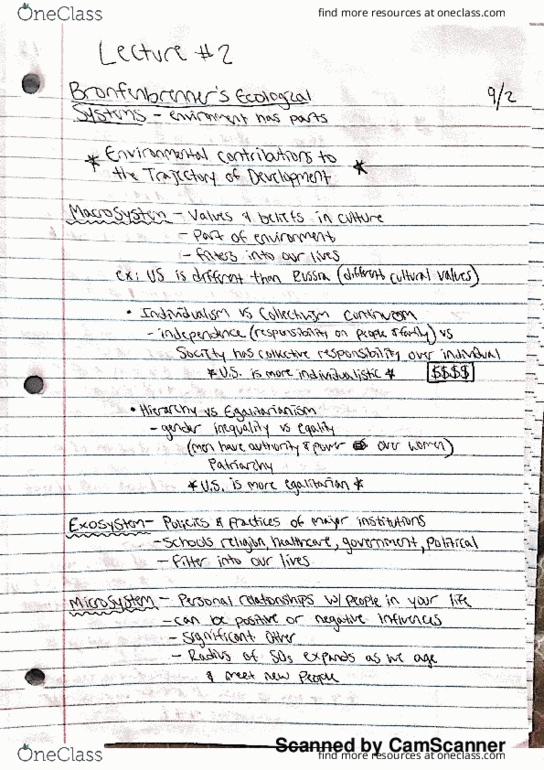 OneClass
find more resources at oneclass.com
Lecture #2
Bronfenbrenner's Ecological
9/2
Systems - environment has parts
* Environmental contributions to *
the Trajectory of Development
Macrosystem - Values & beliefs in culture
- Part of environment
- filters into our lives
ex: US is different than Russia (different cultural values)
• Individualism vs Collectivism continuem
- independence (responsibility on people & family) vs
Society has collective responsibility over individual
* U.S. is more individualistic * $$$$
• Hierarchy vs Egalitarianism
- gender inequality vs eqality
(men have authority & power over women)
Patriarchy
* U.S. is more egalitarian *
Exosystem - Policies & Practices of major institutions
- Schools religion, healthcare, government, Political
- Filter into our lives
Microsystem - Personal relationships w/ people in your life
- can be positive or negative influences
- Significant Other
- Radius of SOs expands as we age
& meet new People
Scanned by CamScanner
OneClass
find more resources at oneclass.com